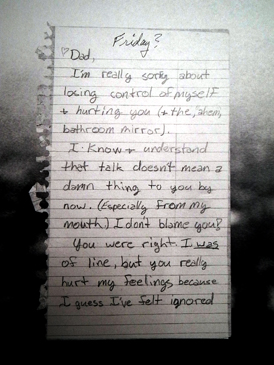 Friday?
♡Dad,
I'm really sorry about
losing control of myself
+ hurting you (+ the, ahem,
bathroom mirror).
I know + understand
that talk doesn't mean a
damn thing to you by
now. (Especially from my
mouth) I don't blame you!
You were right. I was
of line, but you really
hurt my feelings because
I guess I've felt ignored